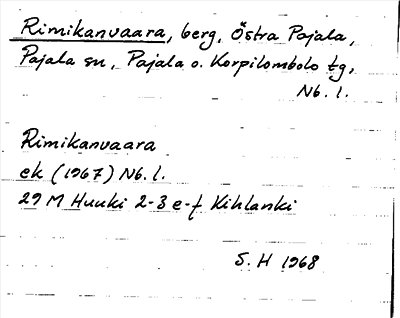 Rimikanvaara, berg, Östra Pajala,
Pajala sn, Pajala o. Korpilombolo tg,
Nb. l.
Rimikanvaara
ek (1967) Nb. l.
29 M Huuki 2-3 e-f Kihlanki
S. H 1968